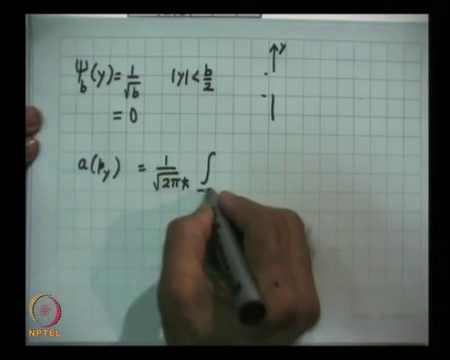 ψ_b(y) = 1/√b |y| < b/2
= 0
y
a(p_y) = 1/√2πħ ∫
NPTEL